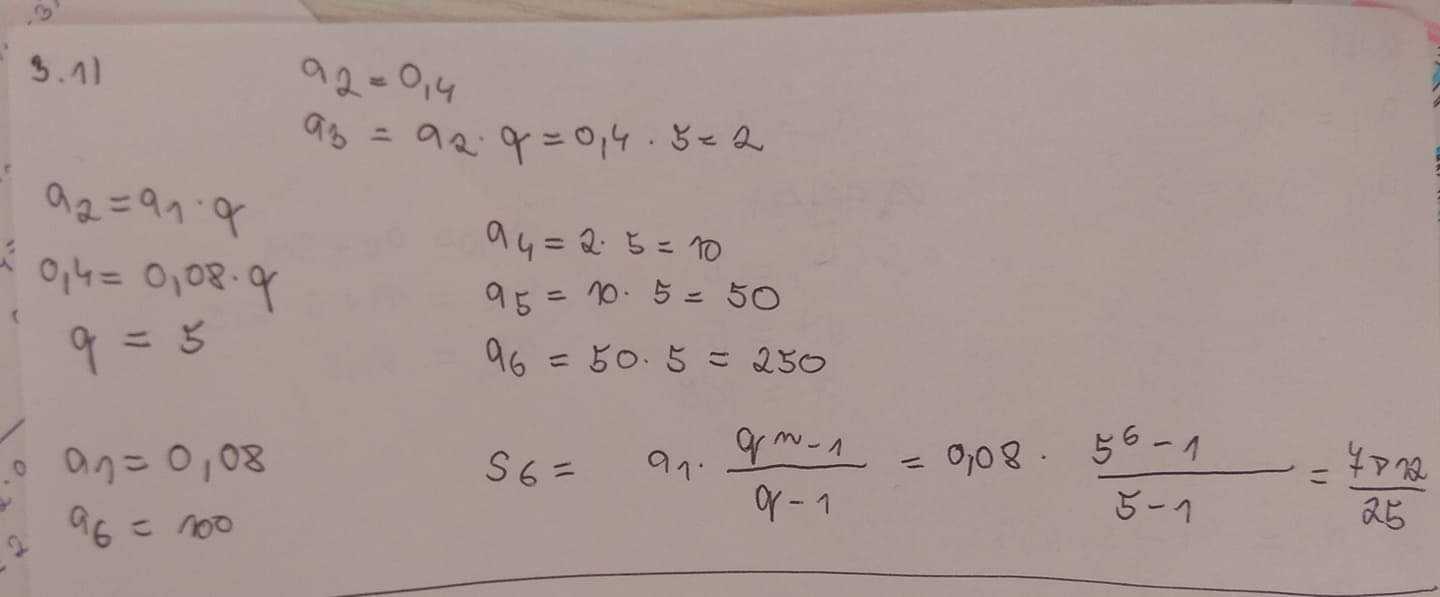 3.1)
a2 = 0,4
a3 = a2 · q = 0,4 · 5 = 2
a2 = a1 · q
0,4 = 0,08 · q
q = 5
a4 = 2 · 5 = 10
a5 = 10 · 5 = 50
a6 = 50 · 5 = 250
a1 = 0,08
a6 = 100
S6 = a1 · (q^n - 1)/(q - 1) = 0,08 · (5^6 - 1)/(5 - 1) = 7812/25